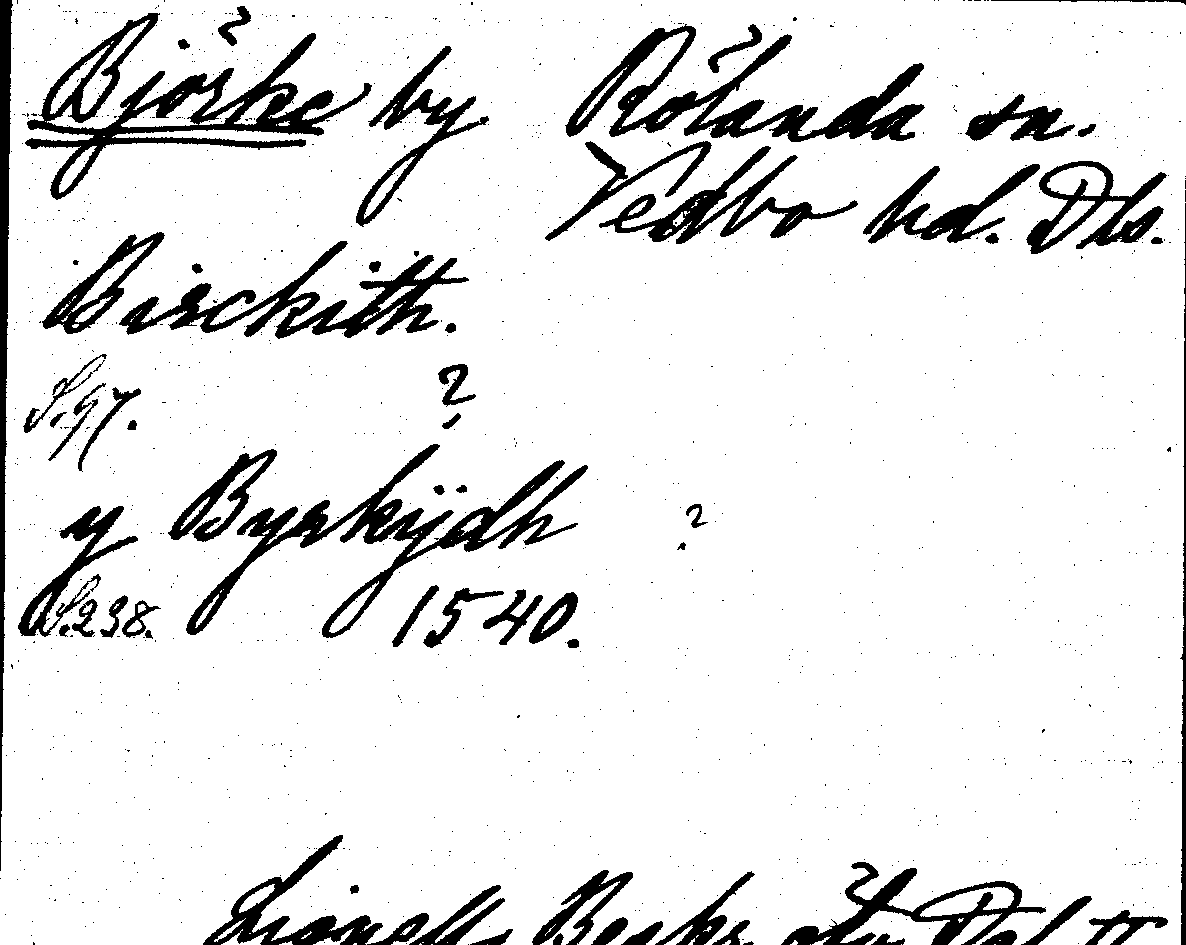 Björke by. Rölanda sn.
Vedbo hd. Dls.
Birckith.
S. 97. ?
y Byrkÿdh ?
S. 238. 1540.
Lignells Beskr. öfv. Dal II